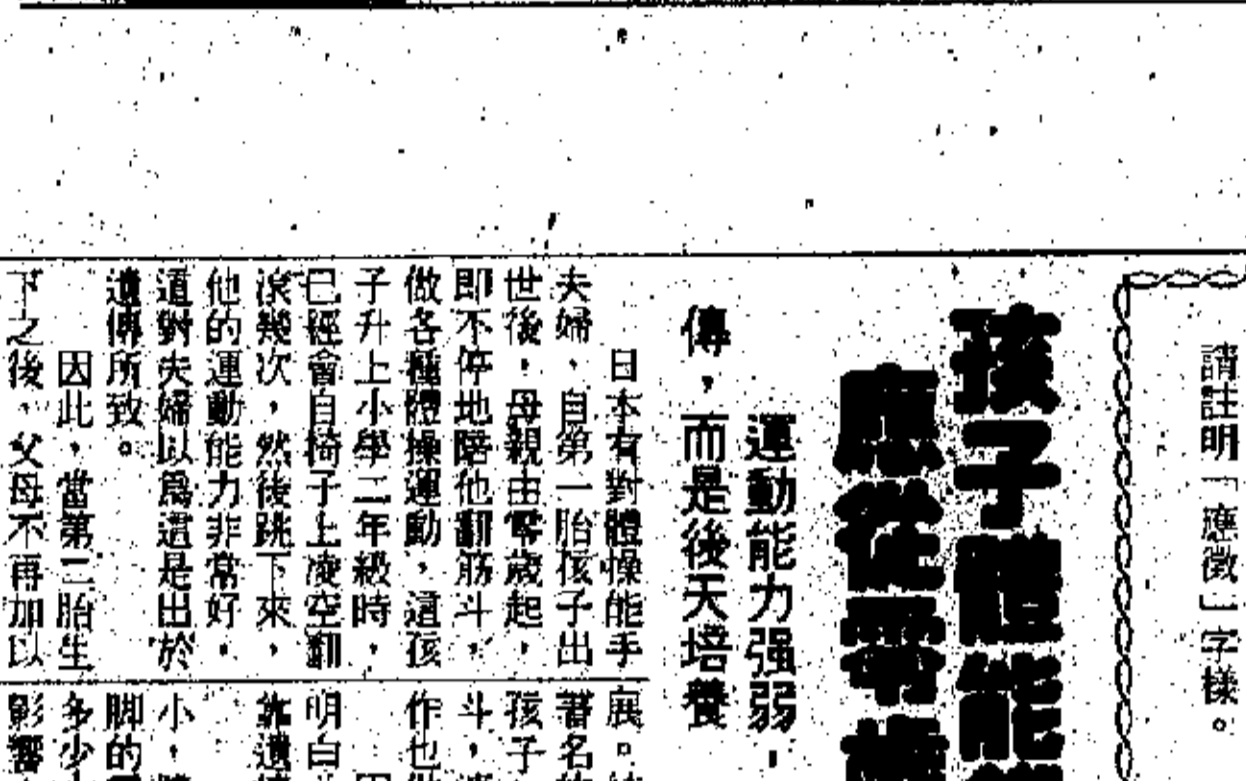 請註明「應徵」字樣。
孩子體能
應從零歲
運動能力强弱，
傳，而是後天培養
日本有對體操能手
夫婦，自第一胎孩子出
世後，母親由零歲起，
即不停地陪他翻筋斗，
做各種體操運動，這孩
子升上小學二年級時，
已經會自椅子上凌空翻
滾幾次，然後跳下來，
他的運動能力非常好，
這對夫婦以爲這是出於
遺傳所致。
因此，當第二胎生
下之後，父母不再加以
展。
著名
孩子
斗，
作也
明白
靠遺
小，
脚的
多少
影響